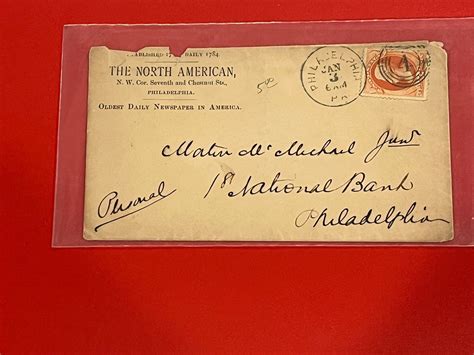 ESTABLISHED 17 DAILY 1784.
THE NORTH AMERICAN,
N. W. Cor. Seventh and Chesnut Sts.,
PHILADELPHIA.
OLDEST DAILY NEWSPAPER IN AMERICA.
5.00
PHILADELPHIA
JAN
3
6 AM
PA
4
Morton McMichael Junr
1st National Bank
Philadelphia
Personal